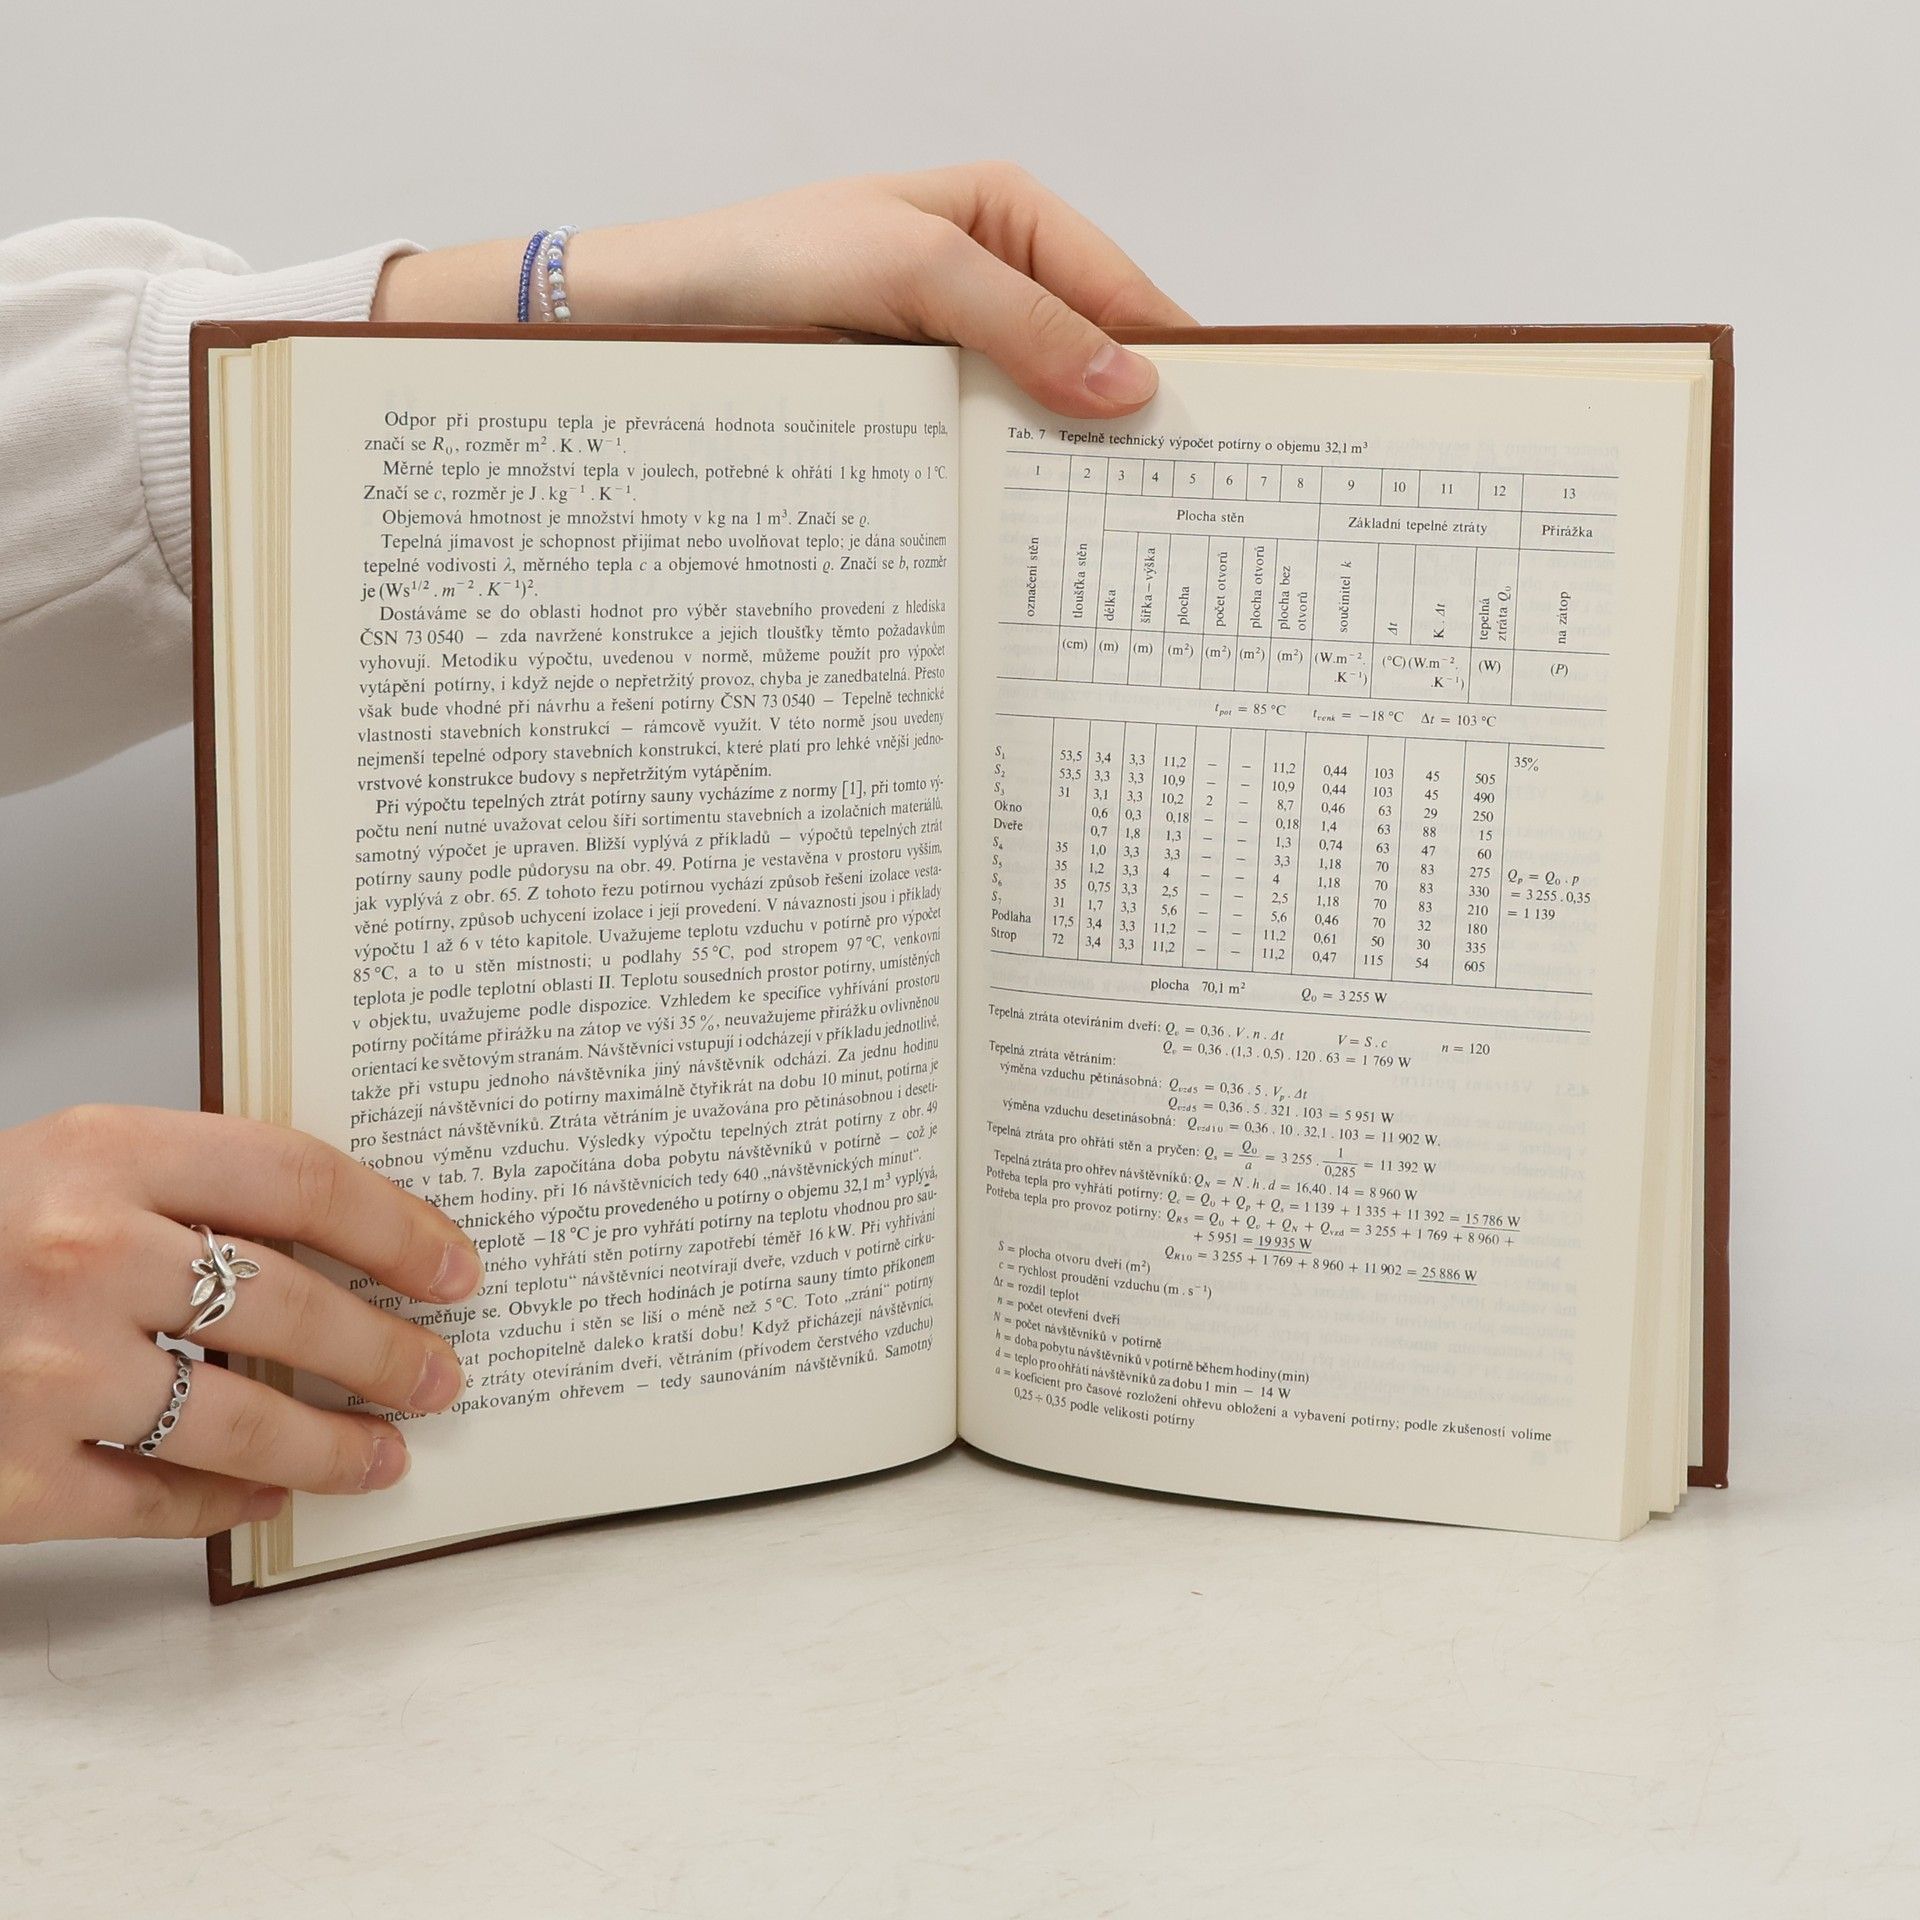 Odpor při prostupu tepla je převrácená hodnota součinitele prostupu tepla,
značí se R₀, rozměr m² . K . W⁻¹.
Měrné teplo je množství tepla v joulech, potřebné k ohřátí 1 kg hmoty o 1 °C.
Značí se c, rozměr je J . kg⁻¹ . K⁻¹.
Objemová hmotnost je množství hmoty v kg na 1 m³. Značí se ϱ.
Tepelná jímavost je schopnost přijímat nebo uvolňovat teplo; je dána součinem
tepelné vodivosti λ, měrného tepla c a objemové hmotnosti ϱ. Značí se b, rozměr
je (Ws¹ᐟ² . m⁻² . K⁻¹)².
Dostáváme se do oblasti hodnot pro výběr stavebního provedení z hlediska
ČSN 73 0540 — zda navržené konstrukce a jejich tloušťky těmto požadavkům
vyhovují. Metodiku výpočtu, uvedenou v normě, můžeme použít pro výpočet
vytápění potírny, i když nejde o nepřetržitý provoz, chyba je zanedbatelná. Přesto
však bude vhodné při návrhu a řešení potírny ČSN 73 0540 — Tepelně technické
vlastnosti stavebních konstrukcí — rámcově využít. V této normě jsou uvedeny
nejmenší tepelné odpory stavebních konstrukcí, které platí pro lehké vnější jedno-
vrstvové konstrukce budovy s nepřetržitým vytápěním.
Při výpočtu tepelných ztrát potírny sauny vycházíme z normy [1], při tomto vý-
počtu není nutné uvažovat celou šíři sortimentu stavebních a izolačních materiálů,
samotný výpočet je upraven. Bližší vyplývá z příkladů — výpočtů tepelných ztrát
potírny sauny podle půdorysu na obr. 49. Potírna je vestavěna v prostoru vyšším,
jak vyplývá z obr. 65. Z tohoto řezu potírnou vychází způsob řešení izolace vesta-
věné potírny, způsob uchycení izolace i její provedení. V návaznosti jsou i příklady
výpočtu 1 až 6 v této kapitole. Uvažujeme teplotu vzduchu v potírně pro výpočet
85 °C, a to u stěn místnosti; u podlahy 55 °C, pod stropem 97 °C, venkovní
teplota je podle teplotní oblasti II. Teplotu sousedních prostor potírny, umístěných
v objektu, uvažujeme podle dispozice. Vzhledem ke specifice vyhřívání prostoru
potírny počítáme přirážku na zátop ve výši 35 %, neuvažujeme přirážku ovlivněnou
orientací ke světovým stranám. Návštěvníci vstupují i odcházejí v příkladu jednotlivě,
takže při vstupu jednoho návštěvníka jiný návštěvník odchází. Za jednu hodinu
přicházejí návštěvníci do potírny maximálně čtyřikrát na dobu 10 minut, potírna je
pro šestnáct návštěvníků. Ztráta větráním je uvažována pro pětinásobnou i deseti-
ásobnou výměnu vzduchu. Výsledky výpočtu tepelných ztrát potírny z obr. 49
me v tab. 7. Byla započítána doba pobytu návštěvníků v potírně — což je
během hodiny, při 16 návštěvnících tedy 640 „návštěvnických minut“.
chnického výpočtu provedeného u potírny o objemu 32,1 m³ vyplývá,
teplotě −18 °C je pro vyhřátí potírny na teplotu vhodnou pro sau-
nov tného vyhřátí stěn potírny zapotřebí téměř 16 kW. Při vyhřívání
írny ozní teplotu“ návštěvníci neotvírají dveře, vzduch v potírně cirku-
yměňuje se. Obvykle po třech hodinách je potírna sauny tímto příkonem
eplota vzduchu i stěn se liší o méně než 5 °C. Toto „zrání“ potírny
vat pochopitelně daleko kratší dobu! Když přicházejí návštěvníci,
na é ztráty otevíráním dveří, větráním (přívodem čerstvého vzduchu)
onečně opakovaným ohřevem — tedy saunováním návštěvníků. Samotný
Tab. 7 Tepelně technický výpočet potírny o objemu 32,1 m³
1 2 3 4 5 6 7 8 9 10 11 12 13
Plocha stěn Základní tepelné ztráty Přirážka
označení stěn tloušťka stěn délka šířka—výška plocha počet otvorů plocha otvorů plocha bez otvorů součinitel k Δt K . Δt tepelná ztráta Q₀ na zátop
(cm) (m) (m) (m²) (m²) (m²) (m²) (W.m⁻². .K⁻¹) (°C) (W.m⁻². .K⁻¹) (W) (P)
t_pot = 85 °C t_venk = −18 °C Δt = 103 °C
S₁ 53,5 3,4 3,3 11,2 — — 11,2 0,44 103 45 505 35%
S₂ 53,5 3,3 3,3 10,9 — — 10,9 0,44 103 45 490
S₃ 31 3,1 3,3 10,2 2 — 8,7 0,46 63 29 250
Okno 0,6 0,3 0,18 — — 0,18 1,4 63 88 15
Dveře 0,7 1,8 1,3 — — 1,3 0,74 63 47 60
S₄ 35 1,0 3,3 3,3 — — 3,3 1,18 70 83 275 Q_p = Q₀ . p
S₅ 35 1,2 3,3 4 — — 4 1,18 70 83 330 = 3 255 . 0,35
S₆ 35 0,75 3,3 2,5 — — 2,5 1,18 70 83 210 = 1 139
S₇ 31 1,7 3,3 5,6 — — 5,6 0,46 70 32 180
Podlaha 17,5 3,4 3,3 11,2 — — 11,2 0,61 50 30 335
Strop 72 3,4 3,3 11,2 — — 11,2 0,47 115 54 605
plocha 70,1 m² Q₀ = 3 255 W
Tepelná ztráta otevíráním dveří: Q_v = 0,36 . V . n . Δt V = S . c n = 120
Q_v = 0,36 . (1,3 . 0,5) . 120 . 63 = 1 769 W
Tepelná ztráta větráním:
výměna vzduchu pětinásobná: Q_vzd5 = 0,36 . 5 . V_p . Δt
Q_vzd5 = 0,36 . 5 . 321 . 103 = 5 951 W
výměna vzduchu desetinásobná: Q_vzd10 = 0,36 . 10 . 32,1 . 103 = 11 902 W.
Tepelná ztráta pro ohřátí stěn a pryčen: Q_s = Q₀/a = 3 255 . 1/0,285 = 11 392 W
Tepelná ztráta pro ohřev návštěvníků: Q_N = N . h . d = 16.40 . 14 = 8 960 W
Potřeba tepla pro vyhřátí potírny: Q_c = Q₀ + Q_p + Q_s = 1 139 + 1 335 + 11 392 = 15 786 W
Potřeba tepla pro provoz potírny: Q_R5 = Q₀ + Q_v + Q_N + Q_vzd = 3 255 + 1 769 + 8 960 +
+ 5 951 = 19 935 W
Q_R10 = 3 255 + 1 769 + 8 960 + 11 902 = 25 886 W
S = plocha otvoru dveří (m²)
c = rychlost proudění vzduchu (m . s⁻¹)
Δt = rozdíl teplot
n = počet otevření dveří
N = počet návštěvníků v potírně
h = doba pobytu návštěvníků v potírně během hodiny (min)
d = teplo pro ohřátí návštěvníků za dobu 1 min — 14 W
a = koeficient pro časové rozložení ohřevu obložení a vybavení potírny; podle zkušeností volíme
0,25 ÷ 0,35 podle velikosti potírny